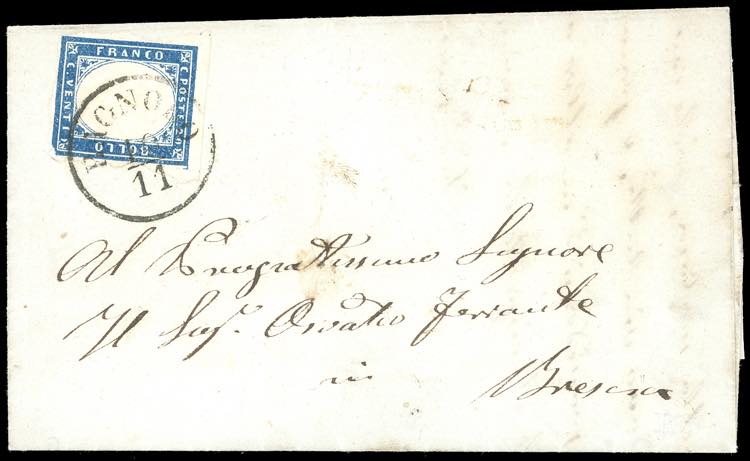 FRANCO
C. VENTI
C. POSTE 20
BOLLO
11
Al Pregiatissimo Signore
Il Sig.r Osvaldo Ferrante
in
Brescia